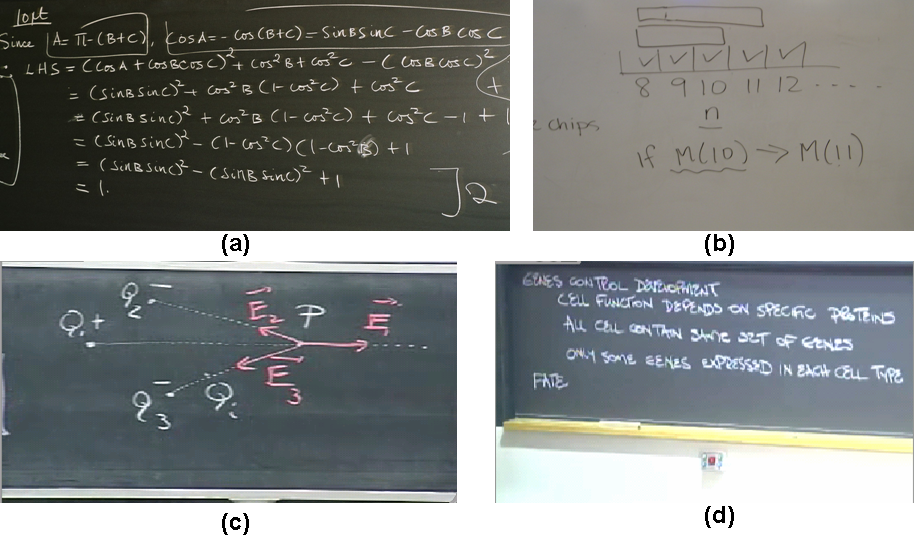 1opt
Since A = π-(B+C), CosA = - cos(B+C) = SinBSinC - CosB CosC
LHS = (CosA + CosBCosC)² + Cos²B + Cos²C - (CosBCosC)²
= (SinBSinC)² + Cos²B (1-Cos²C) + Cos²C
= (SinBSinC)² + Cos²B (1-Cos²C) + Cos²C - 1 + 1
= (SinBSinC)² - (1-Cos²C)(1-Cos²B) + 1
= (SinBSinC)² - (SinBSinC)² + 1
= 1.
] 2
(a)
✓ ✓ ✓ ✓ ✓
8 9 10 11 12 .....
n
chips
if M(10) → M(11)
(b)
Q₂ -
Q₁ +
E₂
P
E₁
E₃
Q₃ -
Qᵢ
(c)
GENES CONTROL DEVELOPMENT
CELL FUNCTION DEPENDS ON SPECIFIC PROTEINS
ALL CELL CONTAIN SAME SET OF GENES
ONLY SOME GENES EXPRESSED IN EACH CELL TYPE
FATE
(d)